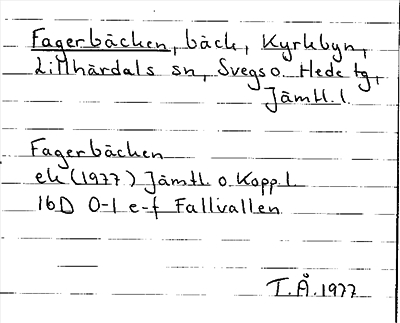 Fagerbäcken, bäck, Kyrkbyn,
Lillhärdals sn, Svegs o. Hede tg,
Jämtl. l.
Fagerbäcken
ek (1977) Jämtl. o. Kopp. l.
16D 0-1 e-f Fallvallen
T.Å. 1977